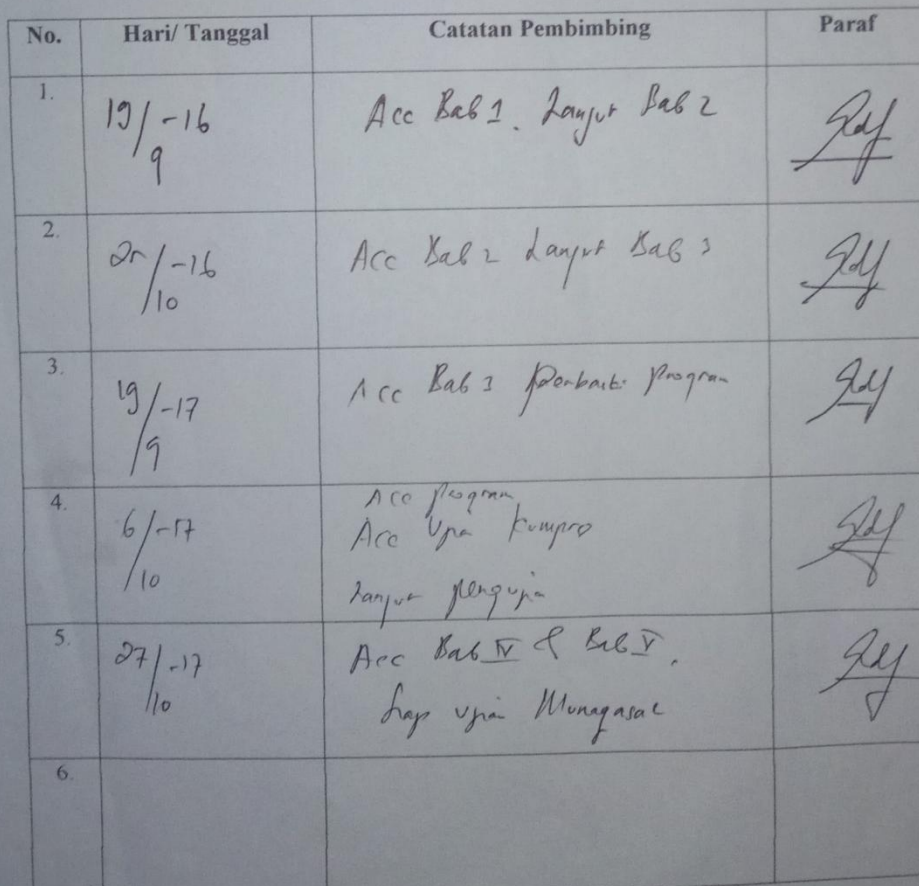 No. Hari/ Tanggal Catatan Pembimbing Paraf
1. 19/9 -16 Acc Bab 1. Lanjut Bab 2
2. /10 -16 Acc Bab 2 Lanjut Bab 3
3. 19/9 -17 Acc Bab 3 perbaiki program
4. 6/10 -17 Acc program
Acc Ujian Kompro
Lanjut pengujian
5. 27/10 -17 Acc Bab IV & Bab V.
Siap ujian Munaqasah
6.